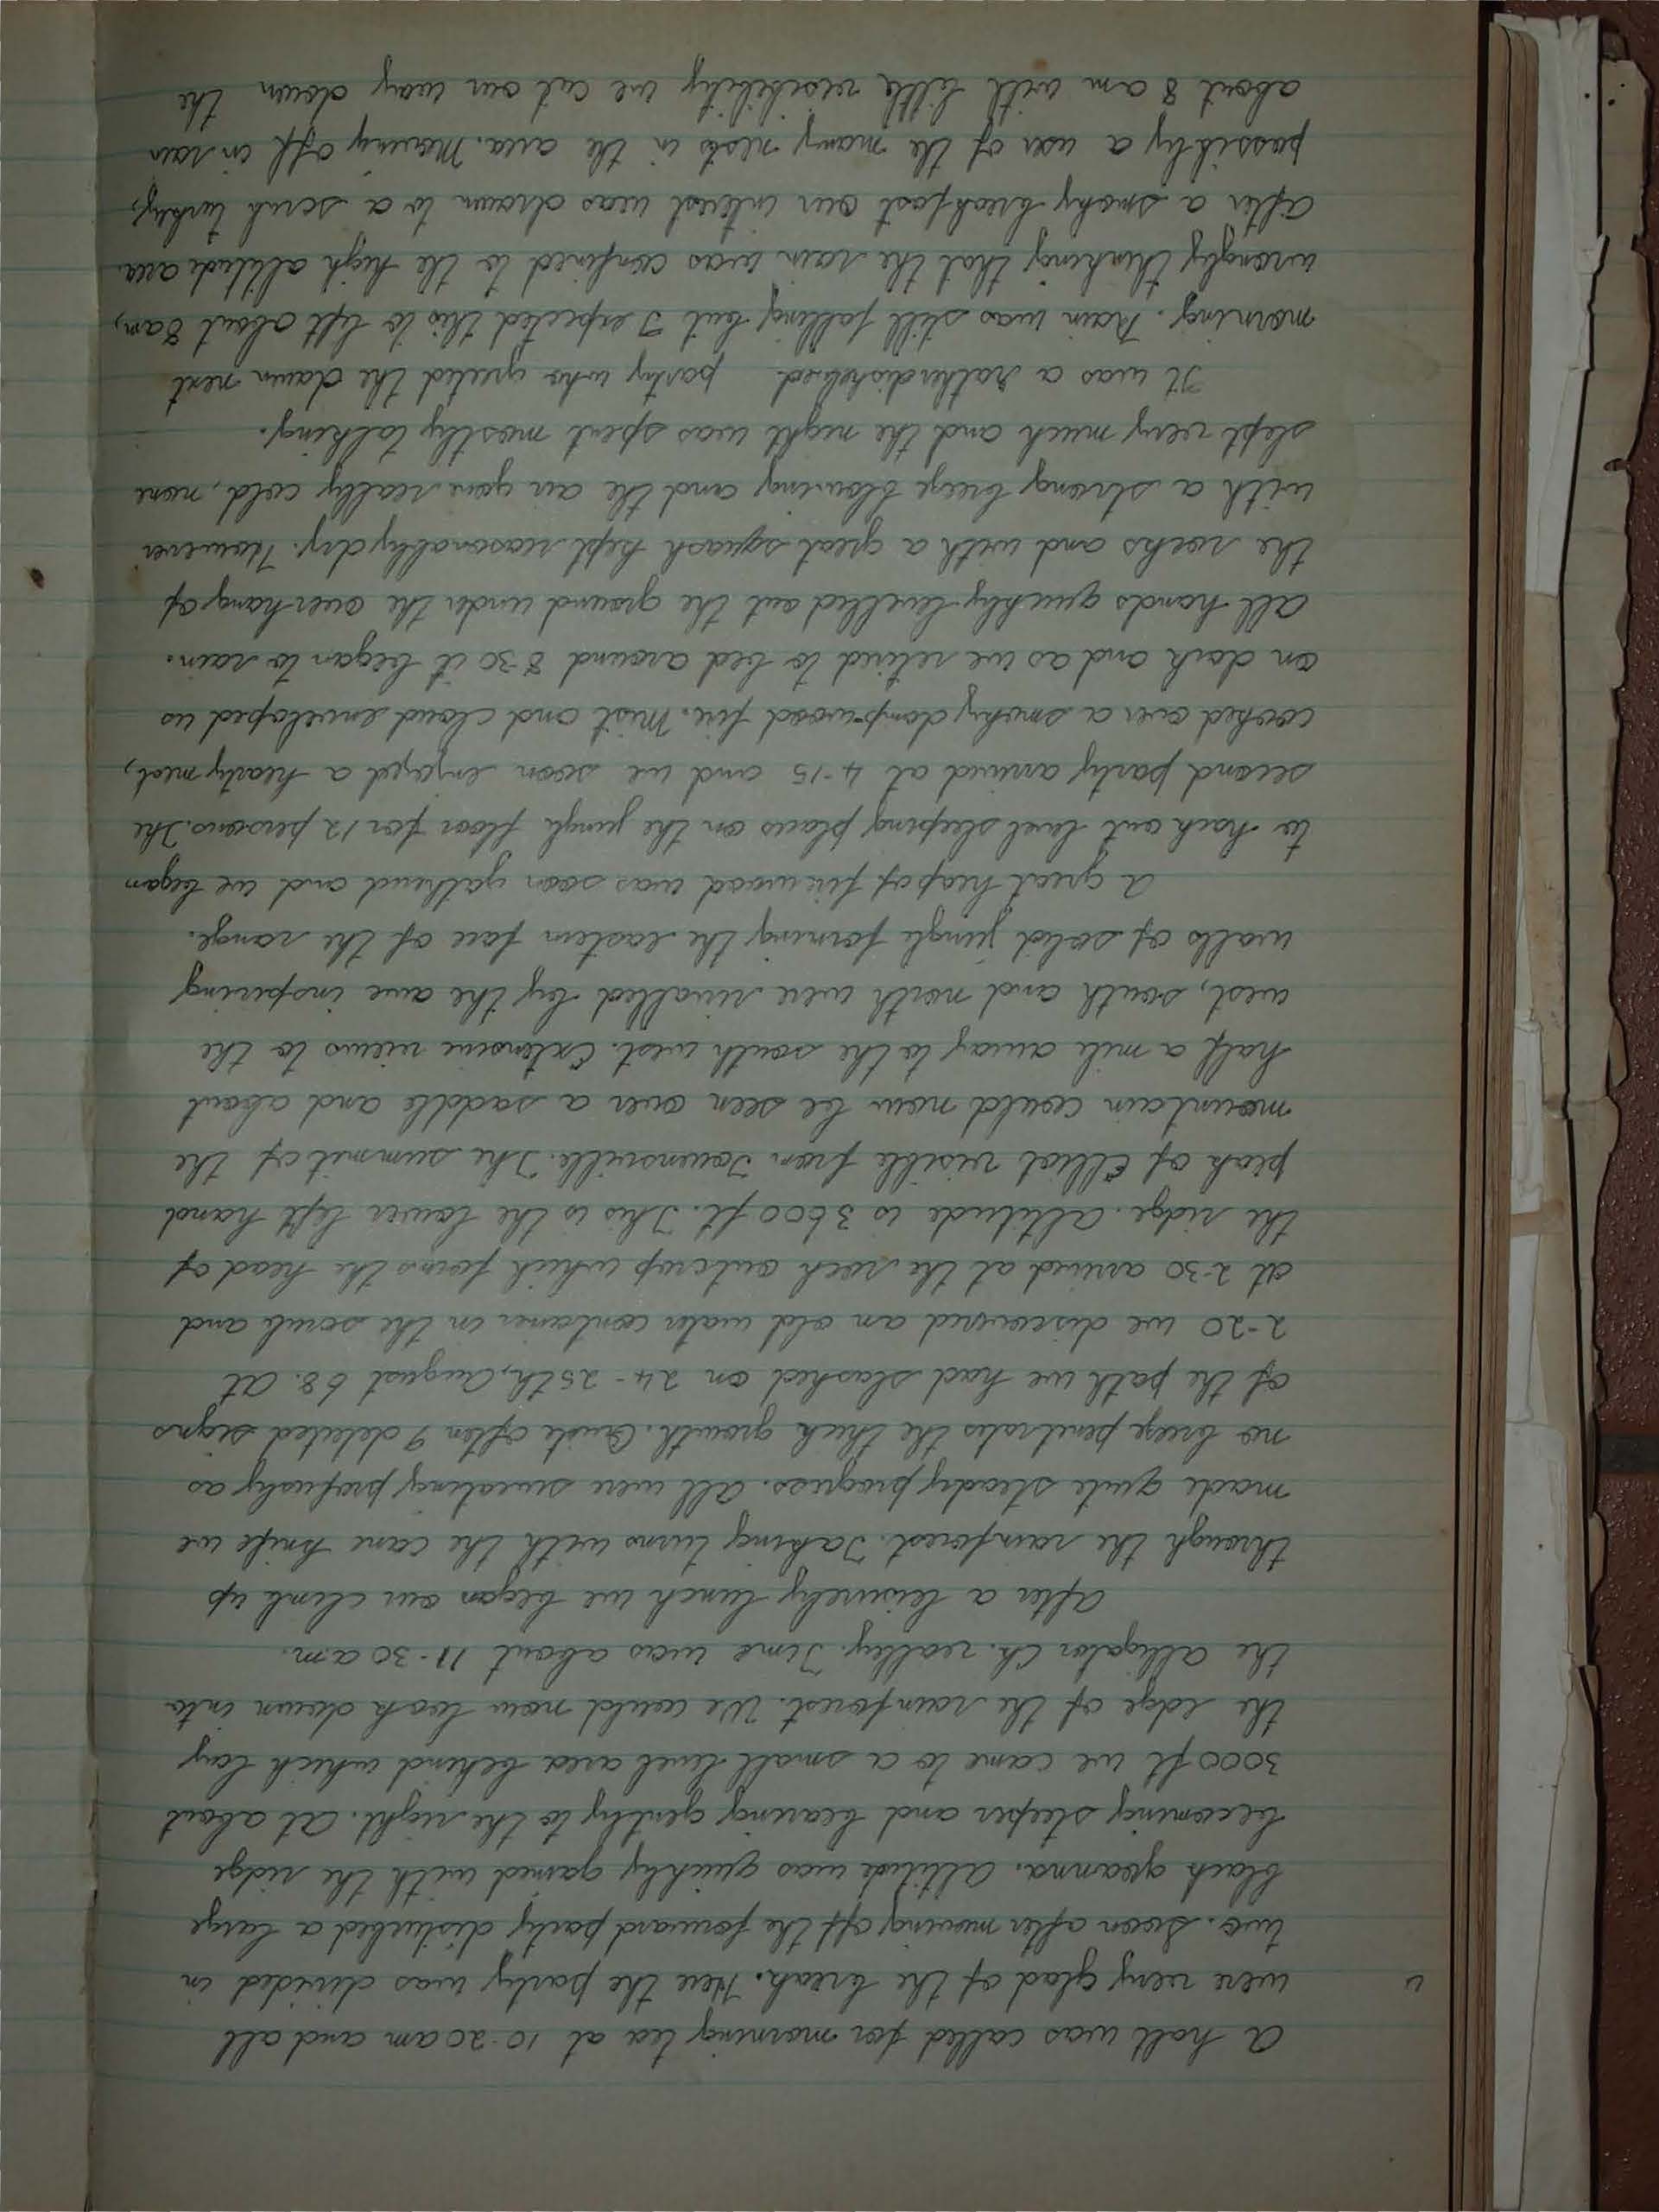 A halt was called for morning tea at 10-20 am and all
were very glad of the break. Here the party was divided in
two. Soon after moving off the forward party disturbed a large
black goanna. Altitude was quickly gained with the ridge
becoming steeper and bearing gently to the right. At about
3000 ft we came to a small level area behind which lay
the edge of the rainforest. We could now look down into
the Alligator Ck. valley. Time was about 11-30 a.m.
After a leisurely lunch we began our climb up
through the rainforest. Taking turns with the cane knife we
made quite steady progress. All were sweating profusely as
no breeze penetrates the thick growth. Quite often I detected signs
of the path we had slashed on 24 - 25th, August 68. At
2-20 we discovered an old water container in the scrub and
at 2-30 arrived at the rock outcrop which forms the head of
the ridge. Altitude is 3600 ft. This is the lower left hand
peak of Elliot visible from Townsville. The summit of the
mountain could now be seen over a saddle and about
half a mile away to the south west. Extensive views to the
west, south and north were rivalled by the awe inspiring
walls of solid jungle forming the eastern face of the range.
A great heap of firewood was soon gathered and we began
to hack out level sleeping places on the jungle floor for 12 persons. The
second party arrived at 4-15 and we soon enjoyed a hearty meal,
cooked over a smoky damp-wood fire. Mist and cloud enveloped us
on dark and as we retired to bed around 8-30 it began to rain.
All hands quickly levelled out the ground under the overhang of
the rocks and with a great squash kept reasonably dry. However
with a strong breeze blowing and the air now really cold, none
slept very much and the night was spent mostly talking.
It was a rather dishelved party who greeted the dawn next
morning. Rain was still falling but I expected this to lift about 8am,
wrongly thinking that the rain was confined to the high altitude area.
After a smoky breakfast our interest was drawn to a scrub turkey,
possibly a user of the many nests in the area. Moving off in rain
about 8 am with little visibility we cut our way down the